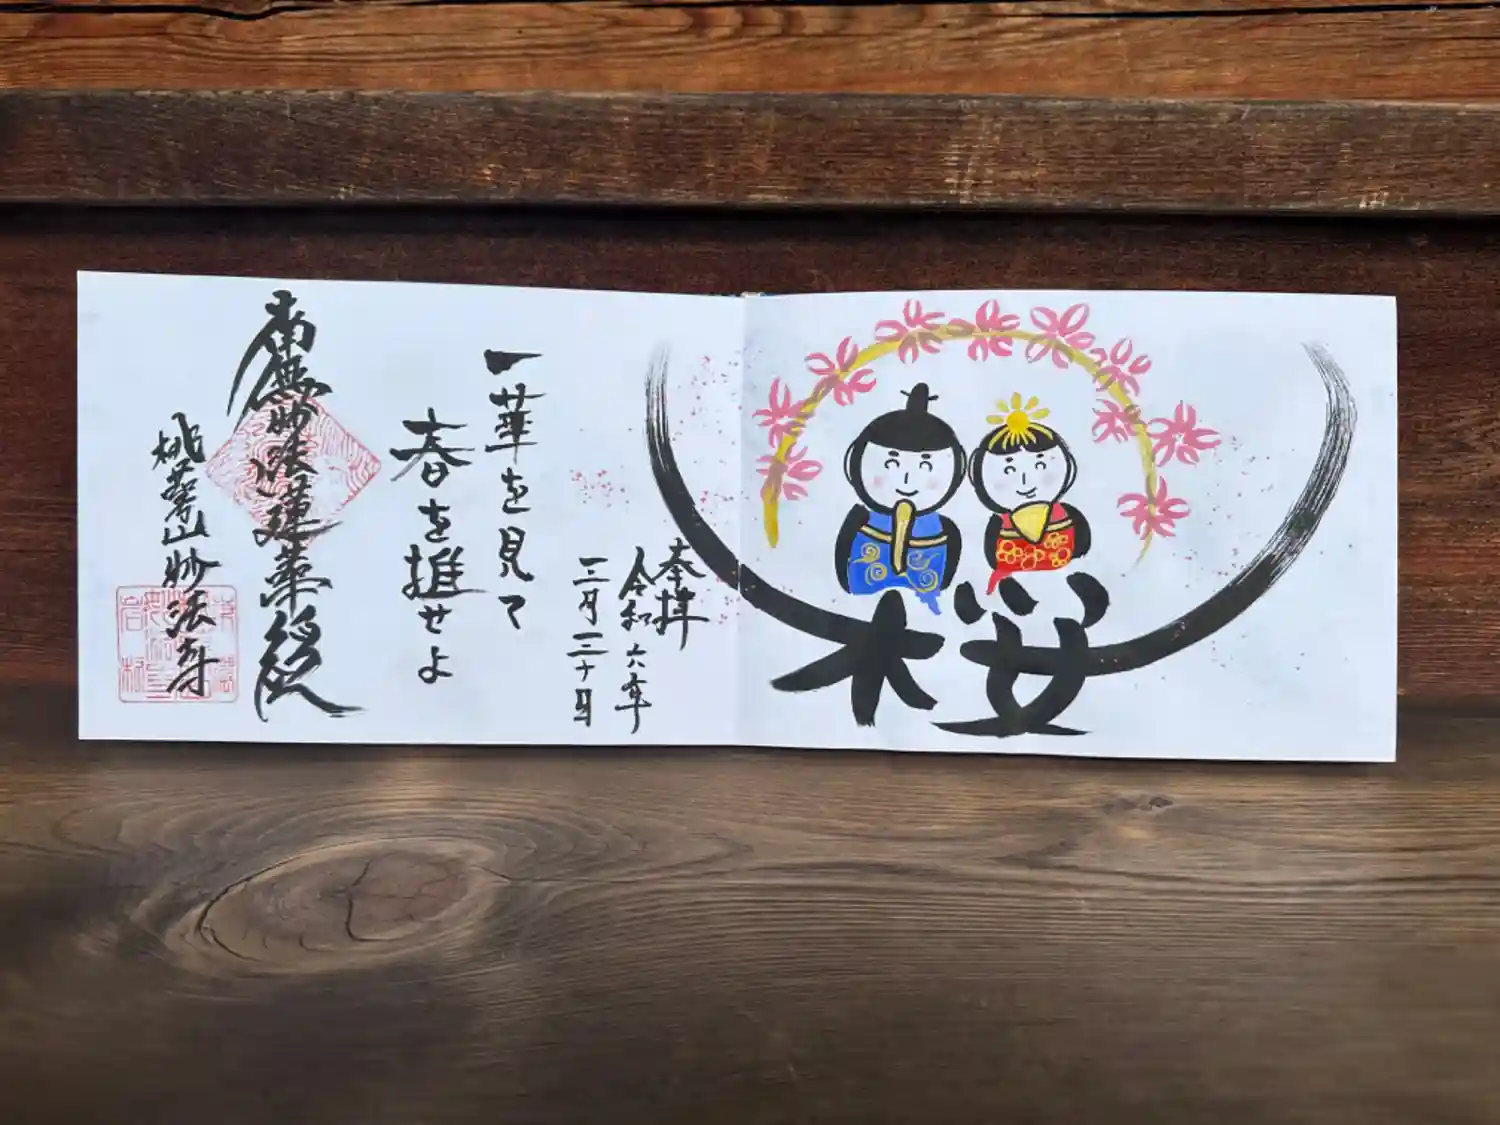 桜
奉拝
令和六年
三月三十日
一華を見て
春を推せよ
南無妙法蓮華経
山妙法寺